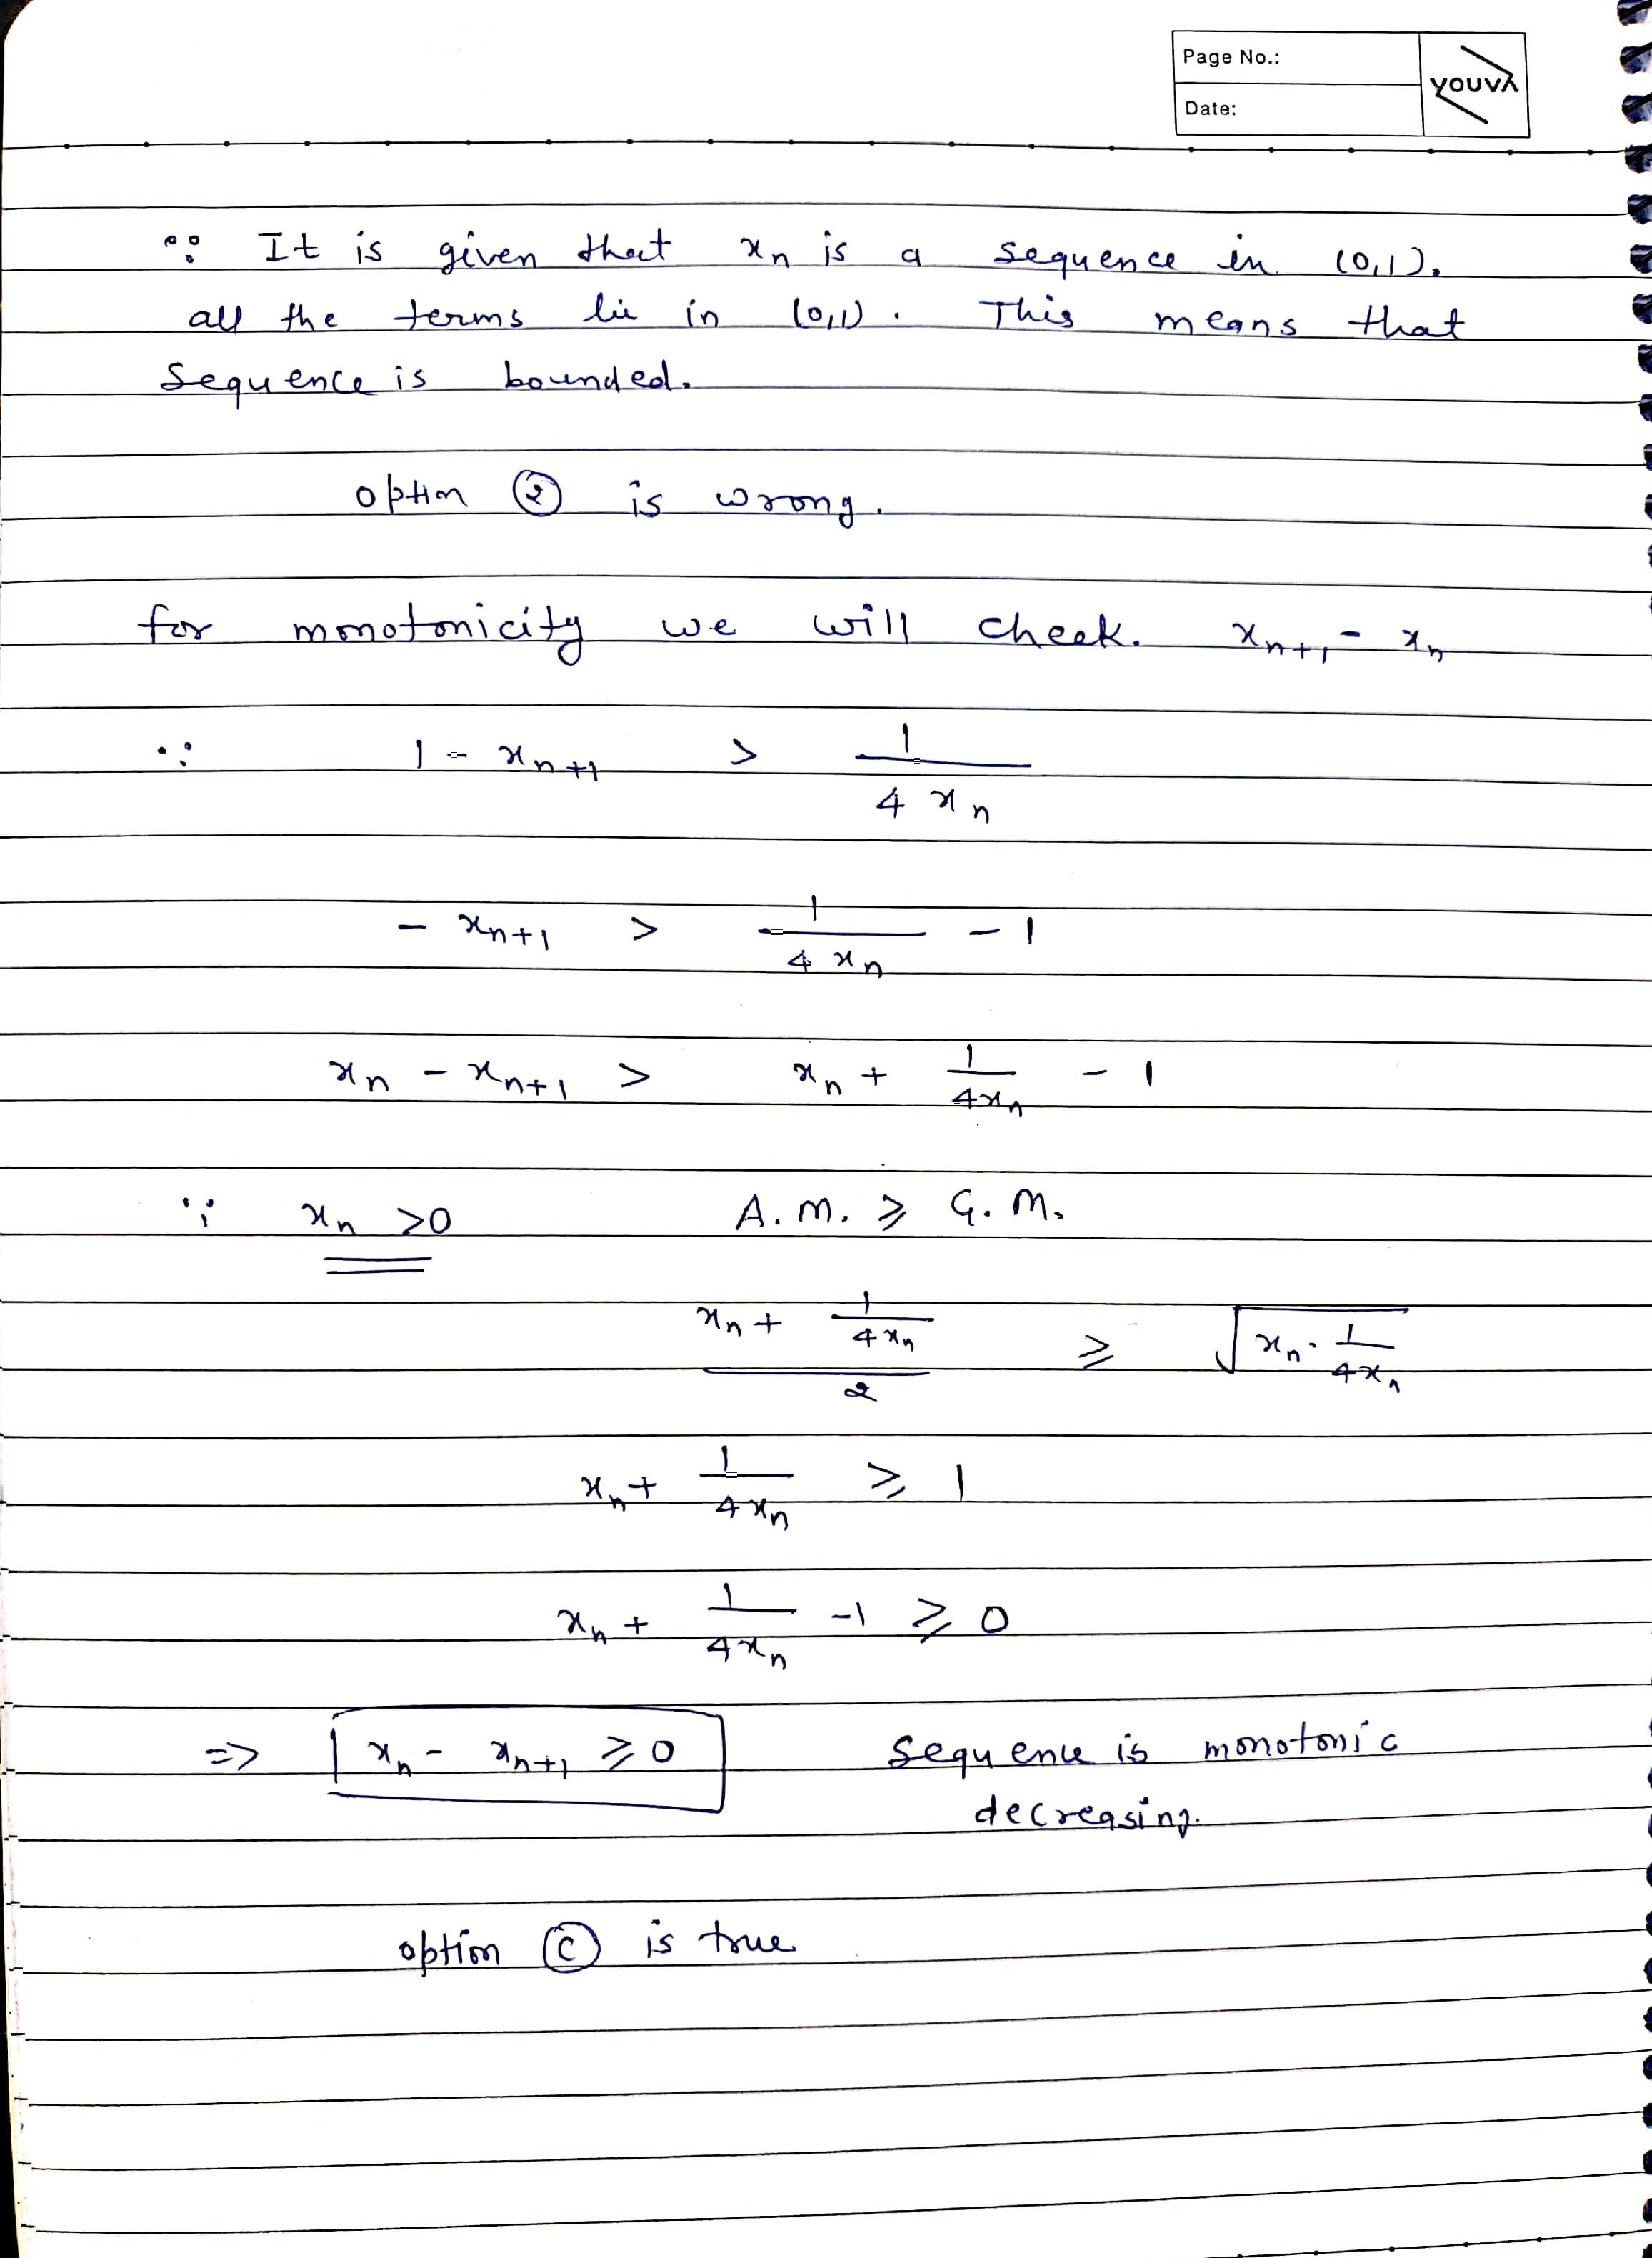 Page No.:
Date:
YOUVA
∵ It is given that xₙ is a sequence in (0,1).
all the terms lie in (0,1). This means that
sequence is bounded.
option ② is wrong.
for monotonicity we will check. xₙ₊₁ - xₙ
∵ 1 - xₙ₊₁ > 1/(4xₙ)
- xₙ₊₁ > 1/(4xₙ) - 1
xₙ - xₙ₊₁ > xₙ + 1/(4xₙ) - 1
∵ xₙ > 0 A.M. ≥ G.M.
(xₙ + 1/(4xₙ))/2 ≥ √(xₙ · 1/(4xₙ))
xₙ + 1/(4xₙ) ≥ 1
xₙ + 1/(4xₙ) - 1 ≥ 0
=> xₙ - xₙ₊₁ ≥ 0 sequence is monotonic
decreasing.
option Ⓒ is true